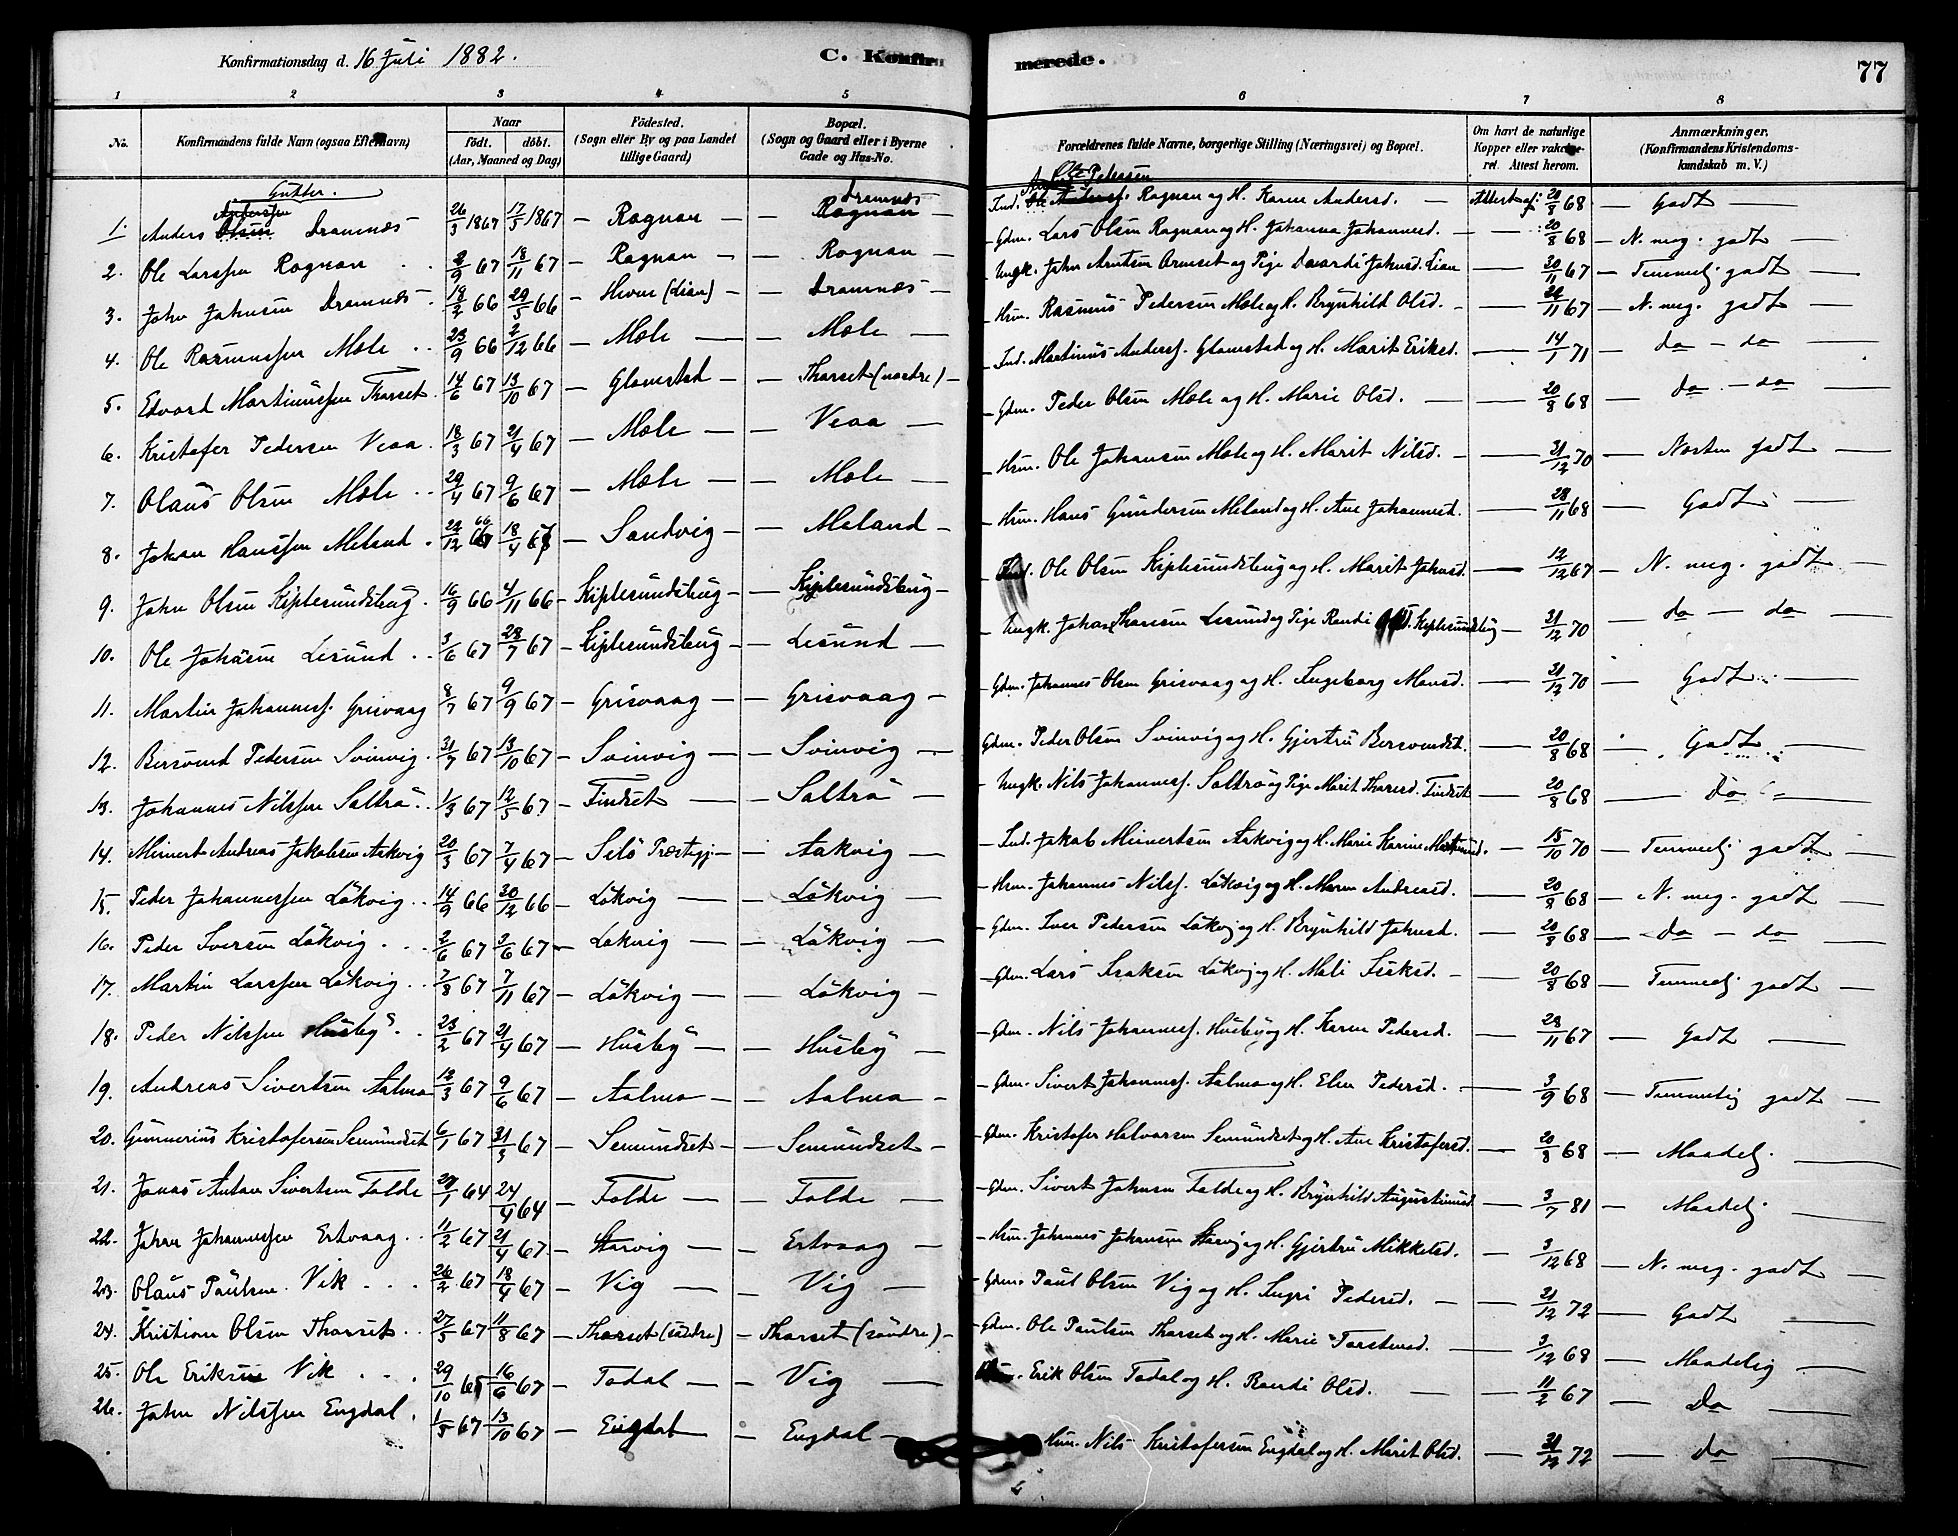 Konfirmationsdag d. 16 Juli 1882.
C. Konfirmerede.
77
1 2 3 4 5 6 7 8
No.
Konfirmandens fulde Navn (ogsaa Efternavn)
Naar
födt. döbt.
(Aar, Maaned og Dag)
Födested.
(Sogn eller By og paa Landet tillige Gaard)
Bopæl.
(Sogn og Gaard eller i Byerne Gade og Hus-No.
Forældrenes fulde Navne, borgerlige Stilling (Næringsvei) og Bopæl.
Om havt de naturlige Kopper eller vakcineret. Attest herom.
Anmærkninger.
(Konfirmandens Kristendomskundskab m. V.)
Gutter.
1. Anders Olsen Anderssen Dromnæs 26/3 1867 17/5 1867 – Rognan – – Rognan Dromnæs – Ind. Rognan og H. Karen Andersd. – Attest af 20/8 68 – Godt –
2. Ole Larssen Rognan 2/9 67 18/11 67 – Rognan – – Rognan – Gdm. Lars Olsen Rognan og H. Johanna Johannesd. – 20/8 68 – N. meg. godt –
3. John Johnsen Dromnæs 18/2 66 29/5 66 – Hvon (Lian) – – Dromnæs – Ungk. John Arntsen Ormset og Pige Johnsd. Lian 30/11 67 – Temmelig godt –
4. Ole Rasmussen Mæle 23/9 66 2/12 66 – Mæle – – Mæle – Hsm. Rasmus Pedersen Mæle og H. Brynhild Olsd. – 22/11 67 – N. meg. godt –
5. Edvard Martinussen Thorset 14/6 67 13/10 67 – Glomstad – – Thorset (nordre) – Ind. Martinus Anderss. Glomstad og H. Marit Eriksd. – 14/1 71 – do – do –
6. Kristofer Pedersen Veaa 18/3 67 21/4 67 – Mæle – – Veaa – Gdm. Peder Olsen Mæle og H. Marie Olsd. – 20/8 68 – do – do –
7. Olaus Olsen Mæle 29/4 67 9/6 67 – Mæle – – Mæle – Hsm. Ole Johansen Mæle og H. Marit Nilsd. – 31/12 70 – Næsten godt –
8. Johan Hanssen Meland 24/12 66 18/4 67 – Sandvig – – Meland – Hsm. Hans Gundersen Meland og H. Ane Johannesd. – 28/11 68 – Godt –
9. John Olsen Kiplesundsbug 16/9 66 4/11 66 – Kiplesundsbug – Kiplesundsbug – Ind. Ole Olsen Kiplesundsbug og H. Marit Johnsd. – 12/12 67 – N. meg. godt –
10. Ole Johansen Lesund 3/6 67 28/7 67 – Kiplesundsbug – – Lesund – Ungk. Johan Thoresen Lesund og Pige Randi Kiplesundsbug – 31/12 70 – do – do –
11. Martin Johanness. Grisvaag 8/7 67 9/9 67 – Grisvaag – – Grisvaag – Gdm. Johannes Olsen Grisvaag og H. Ingeborg Monsd. – 31/12 70 – Godt –
12. Bersvend Pedersen Svinvig 31/7 67 13/10 67 – Svinvig – – Svinvig – Gdm. Peder Olsen Svinvig og H. Gjertru Bersvendsd. – 20/8 68 – Godt –
13. Johannes Nilssen Saltrö 1/3 67 12/5 67 – Findset – – Saltrö – Ungk. Nils Johanness. Saltrö og Pige Marit Thoresd. Findset 20/8 68 – Do –
14. Meinert Andreas Jakobsen Aakvig 20/3 67 7/4 67 – Selö Præstegj – – Aakvig – Ind. Jakob Meinertsen Aakvig og H. Marie Karine – 15/10 70 – Temmelig godt –
15. Peder Johannessen Lökvig 14/9 66 30/12 66 – Lökvig – – Lökvig – Hsm. Johannes Nilss. Lökvig og H. Maren Andreasd. – 20/8 68 – N. meg. godt –
16. Peder Iversen Lökvig 2/6 67 3/6 67 – Lökvig – – Lökvig – Gdm. Iver Pedersen Lökvig og H. Brynhild Johnsd. – 20/8 68 – do – do –
17. Martin Larssen Lökvig 7/8 67 7/11 67 – Lökvig – – Lökvig – Gdm. Lars Isaksen Lökvig og H. Mali Isaksd. – 20/8 68 – Temmelig godt –
18. Peder Nilssen Husby 23/2 67 21/4 67 – Husby – – Husby – Gdm. Nils Johanness. Husby og H. Karen Pedersd. – 28/11 67 – Godt –
19. Andreas Sivertsen Aalmo 12/3 67 9/6 67 – Aalmo – – Aalmo – Gdm. Sivert Johanness. Aalmo og H. Elen Pedersd. – 3/9 68 – Temmelig godt –
20. Gunnerius Kristofersen Semundset 6/1 67 31/3 67 – Semundset – – Semundset – Gdm. Kristofer Halvorsen Semundset og H. Ane Kristofersd. – 20/8 68 – Maadelig. –
21. Jonas Anton Sivertsen Folde 27/1 64 24/4 64 – Folde – – Folde – Gdm. Sivert Johnsen Folde og H. Brynhild Augustinusd. – 3/7 81 – Maadelig. –
22. Johan Johannessen Ertvaag 11/2 67 21/4 67 – Storvig – – Ertvaag – Hsm. Johannes Johansen Storvig og H. Gjertru Mikkelsd. – 3/12 68 – N. meg. godt –
23. Olaus Paulsen Vik 26/2 67 18/4 67 – Vig – – Vig – Gdm. Paul Olsen Vig og H. Ingri Pedersd. – 31/12 72 – Godt –
24. Kristian Olsen Thorset 27/5 67 11/8 67 – Thorset (söndre) – Thorset (söndre) – Gdm. Ole Paulsen Thorset og H. Marie Torstensd. – 3/12 68 – Maadelig –
25. Ole Eriksen Vik 29/10 65 16/6 67 – Todal – – Vig – Erik Olsen Todal og H. Randi Olsd. – 11/2 67 – Do –
26. John Nilssen Engdal 1/5 67 13/10 67 – Engdal – – Engdal – Hsm. Nils Kristofersen Engdal og H. Marit Olsd. – 31/12 72 – do –